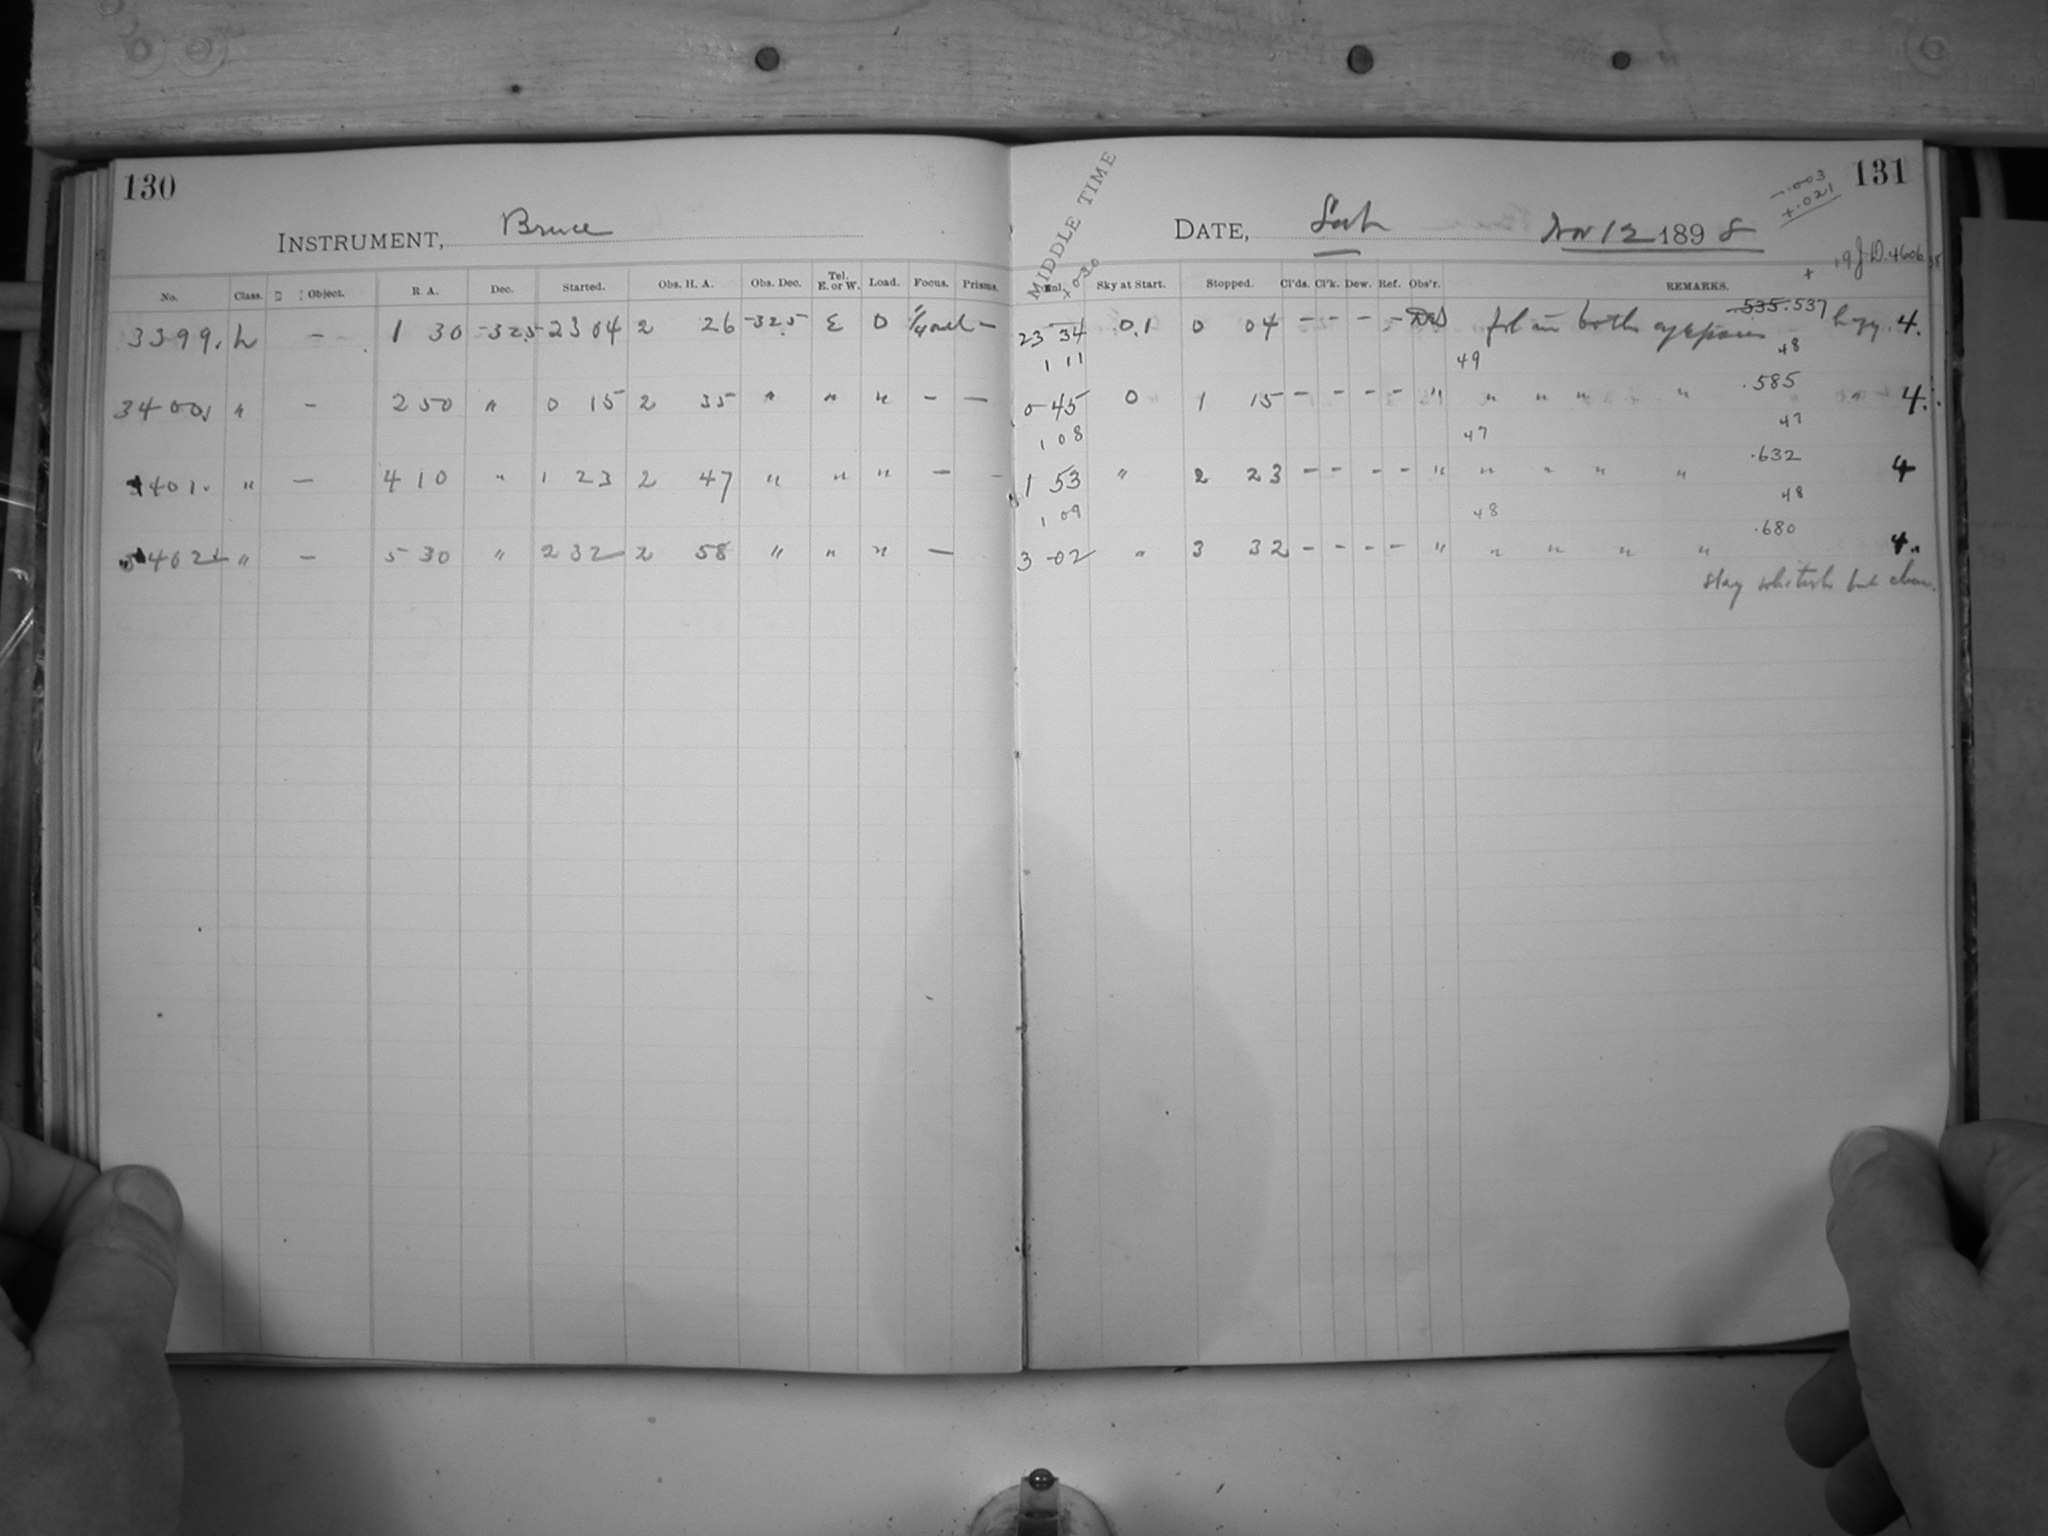 130
INSTRUMENT, Bruce
No. Class. Object. R. A. Dec. Started. Obs. H. A. Obs. Dec. Tel. E. or W. Load. Focus. Prisms.
3399. L - 1 30 -32.5 23 04 2 26 -32.5 E 0 -
3400 " - 2 50 " 0 15 2 35 " " " - -
3401. " - 4 10 " 1 23 2 47 " " " - -
402 " - 5 30 " 2 32 2 58 " " " -
131
-.003
+.021
MIDDLE TIME
DATE, Sat Nov 12 1898
J.D. 4606
Enl. Sky at Start. Stopped. Cl'ds. Cl'k. Dew. Ref. Obs'r. REMARKS.
23 34 0.1 0 04 - - - - in both .535 .537 4.
1 11 49 48
0 45 0 1 15 - - - - " " " " " .585 4.
1 08 47 47
1 53 " 2 23 - - - - " " " " " .632 4
1 09 48 48
3 02 " 3 32 - - - - " " " " " .680 4.
sky whitish but clear.